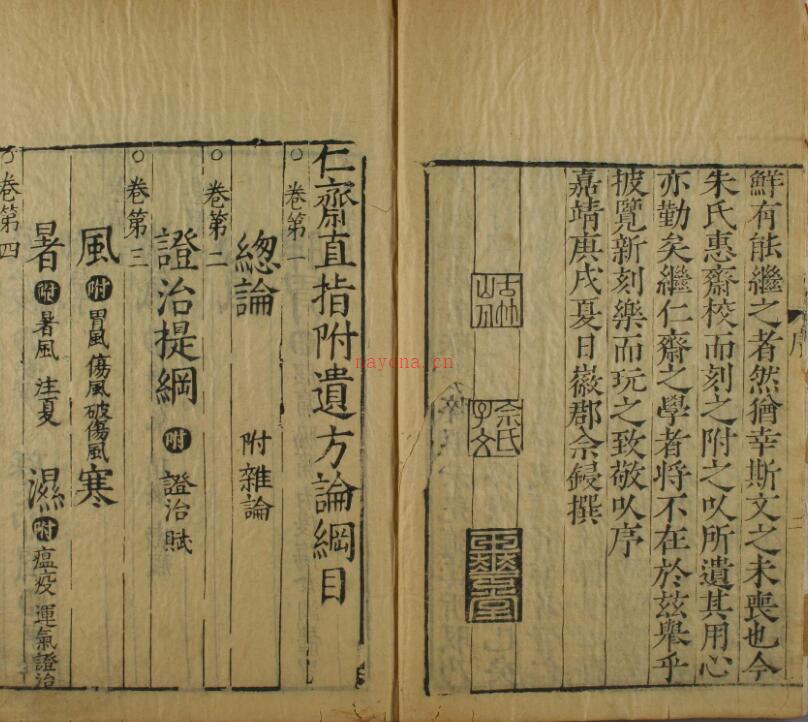 鮮有能繼之者然猶幸斯文之未喪也今
朱氏惠齋校而刻之附之以所遺其用心
亦勤矣繼仁齋之學者將不在於茲舉乎
披覽新刻樂而玩之致敬以序
嘉靖庚戌夏日徽郡佘鋟撰
佘氏子文
序
二
仁齋直指附遺方論綱目
○卷第一
總論 附雜論
○卷第二
證治提綱 附 證治賦
○卷第三
風 附 胃風 傷風 破傷風 寒
暑 附 暑風 注夏 濕 附 瘟疫 運氣證治
○卷第四
nayona.cn